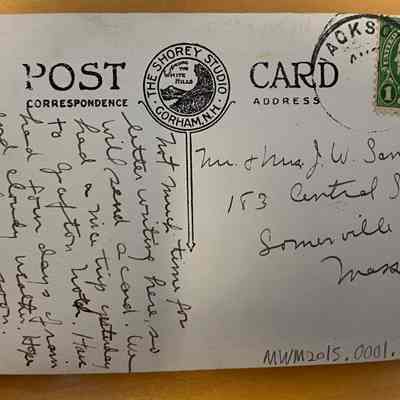 POST CARD
CORRESPONDENCE
ADDRESS
THE SHOREY STUDIO
FROM THE
WHITE HILLS
GORHAM, N.H.
ACKS
1
Not much time for
letter writing here, so
will send a card. We
had a nice trip yesterday
to Notch. Have
had four days of rain
and cloudy weather. Hope
soon.
Mr. & Mrs. J. W.
183 Central S
Somerville
Mass
MWM2015.0001.